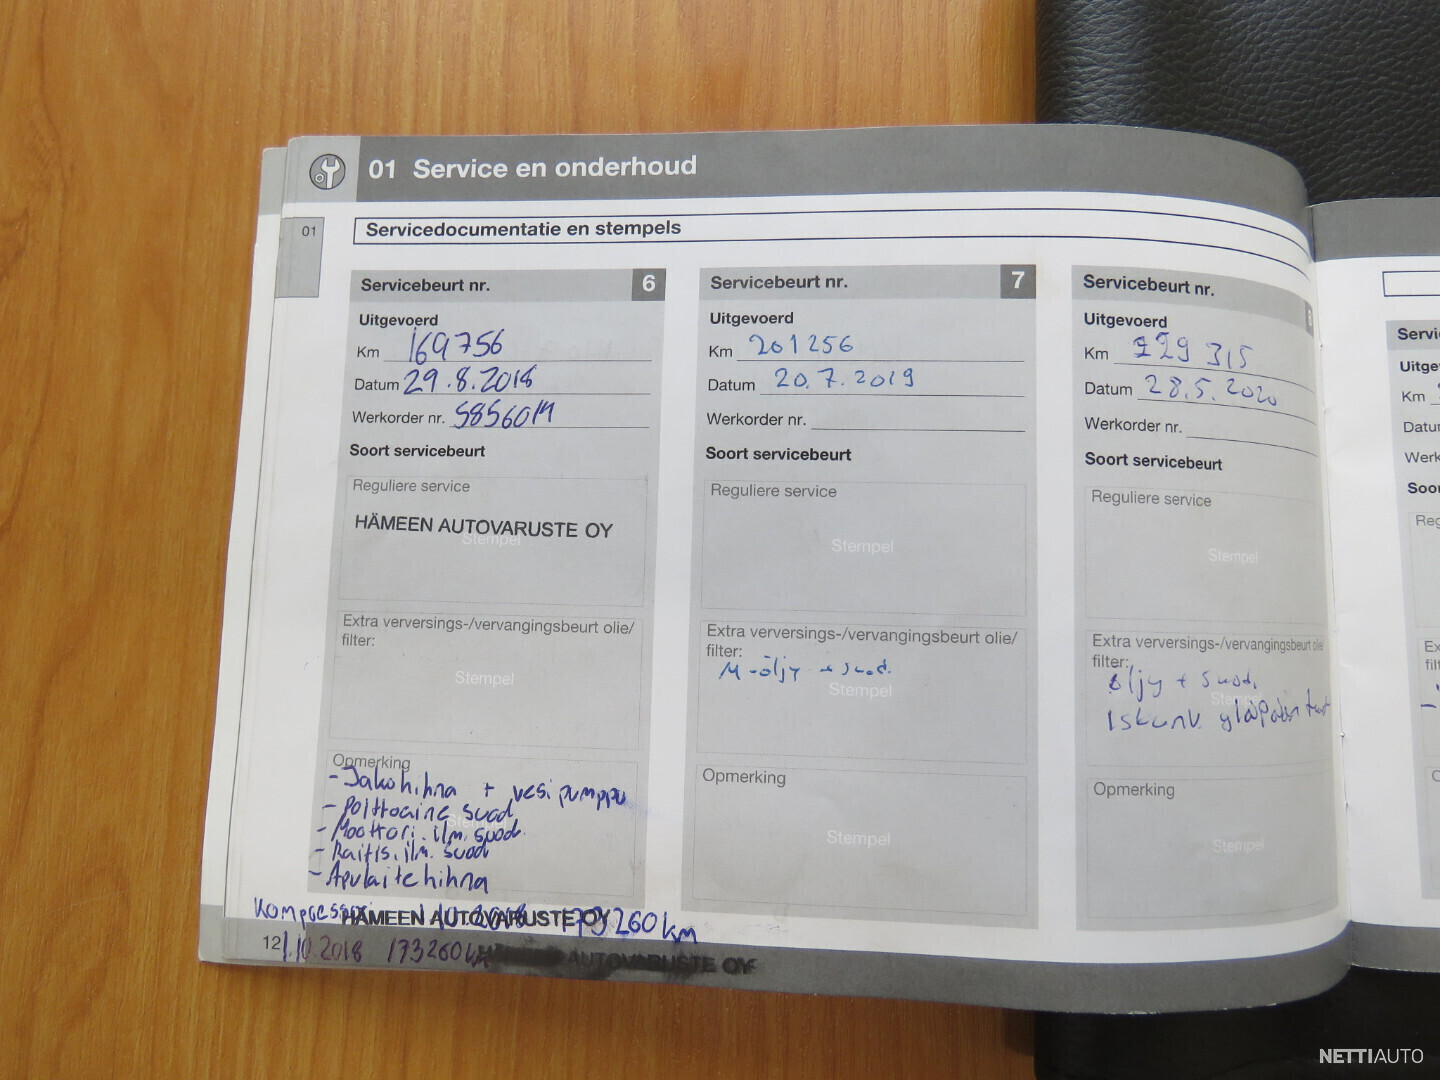 01 Service en onderhoud
01
Servicedocumentatie en stempels
Servicebeurt nr. 6
Uitgevoerd
Km 169756
Datum 29.8.2018
Werkorder nr.
Soort servicebeurt
Reguliere service
HÄMEEN AUTOVARUSTE OY
Stempel
Extra verversings-/vervangingsbeurt olie/
filter:
Stempel
Opmerking
- Jakohihna + vesipumppu
- Polttoaine suod
- Moottori.ilm.suod.
- Raitis.ilm.suod
- Apulaitehihna
Servicebeurt nr. 7
Uitgevoerd
Km 201256
Datum 20.7.2019
Werkorder nr.
Soort servicebeurt
Reguliere service
Stempel
Extra verversings-/vervangingsbeurt olie/
filter:
M-öljy + suod.
Stempel
Opmerking
Stempel
Servicebeurt nr.
Uitgevoerd
Km 229 315
Datum 28.5.2020
Werkorder nr.
Soort servicebeurt
Reguliere service
Stempel
Extra verversings-/vervangingsbeurt olie
filter:
öljy + suod.
Stempel
Iskunv.
Opmerking
Stempel
Km
HÄMEEN AUTOVARUSTE OY 173260 km
12 1.10.2018 173260 km AUTOVARUSTE OY
NETTIAUTO